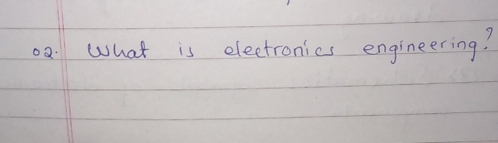 02. What is electronics engineering?